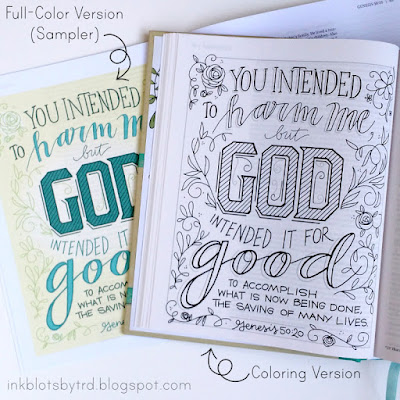 Full-Color Version
(Sampler)
YOU INTENDED
TO harm me,
but
GOD
INTENDED IT FOR
good
TO ACCOMPLISH
WHAT IS NOW BEING DONE,
THE SAVING OF MANY LIVES.
Genesis 50:20
YOU INTENDED
TO harm me
but
GOD
INTENDED IT
good
TO ACCOM
WHAT IS NO
THE SAVING
Genesis
Coloring Version
inkblotsbytrd.blogspot.com